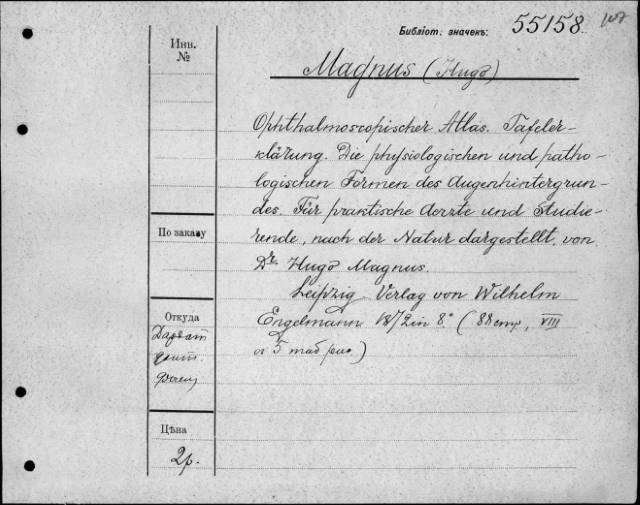 Библіот. значекъ: 55158
Инв.
№
Magnus (Hugo)
Ophthalmoscopischer Atlas. Tafeler-
klärung. Die physiologischen und patho-
logischen Formen des Augenhintergrun-
des. Für praktische Aerzte und Studie-
rende, nach der Natur dargestellt, von
Dr Hugo Magnus.
Leipzig Verlag von Wilhelm
Engelmann 1872 in 8° (88 стр, VIII
5 таб рис.)
По заказу
Откуда
Цѣна
2р.